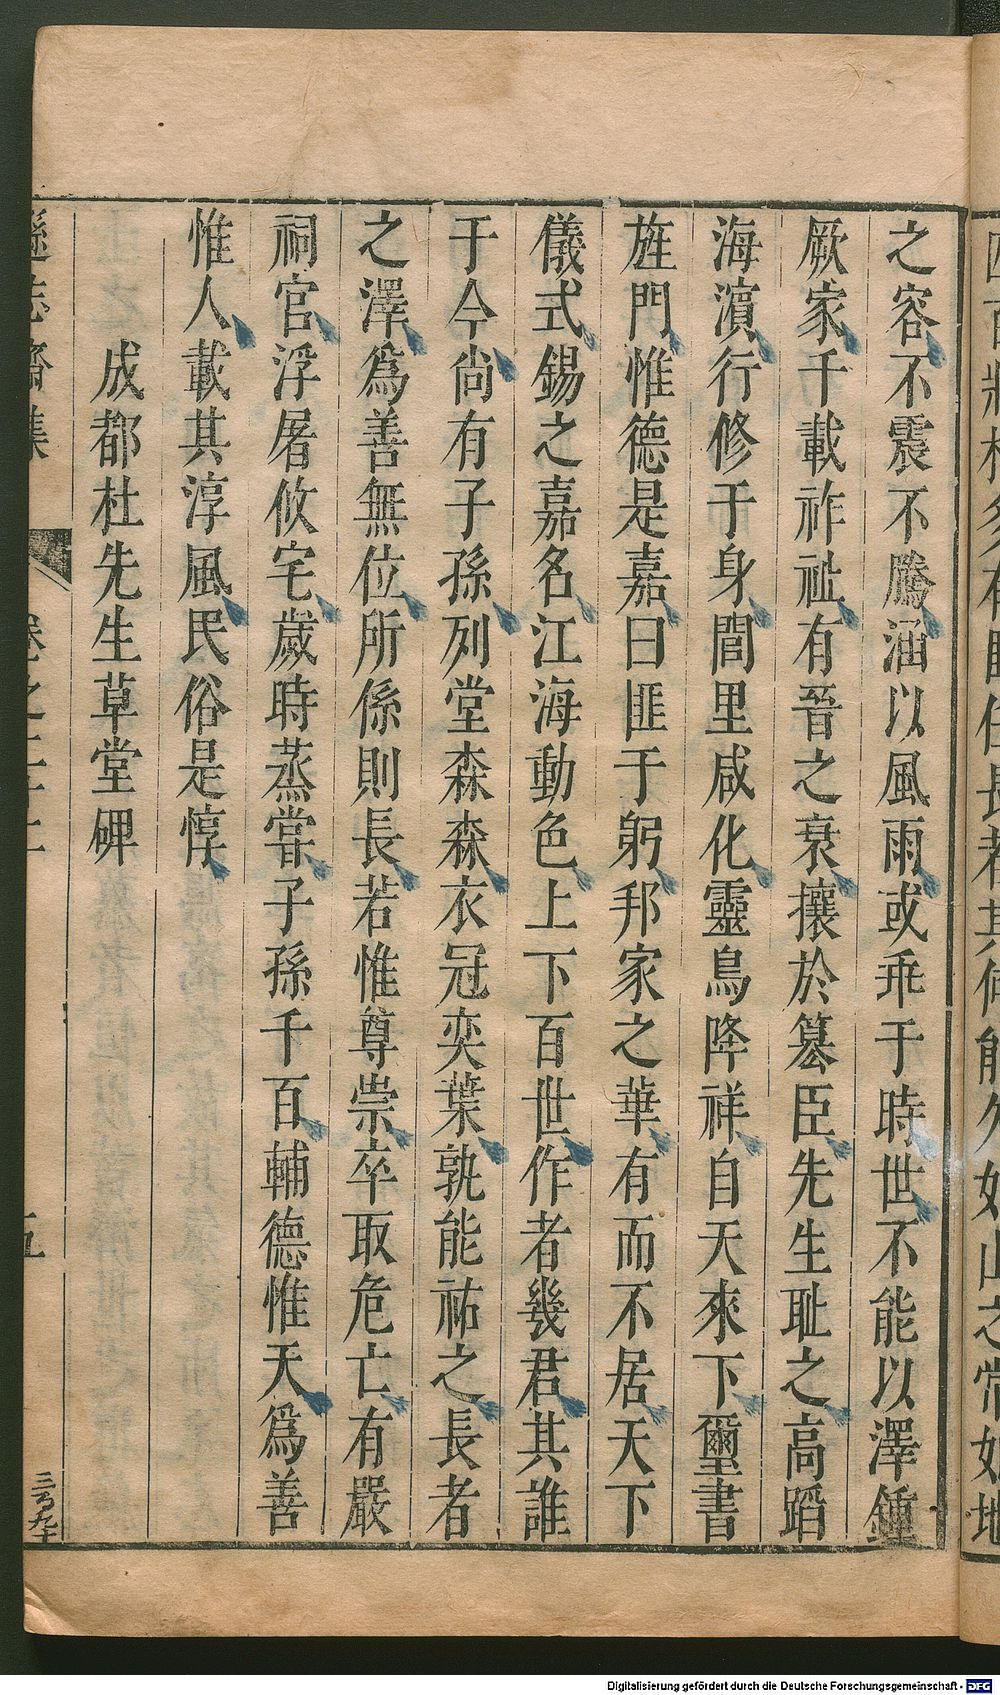 之容不震不騰涵以風雨或乖于時世不能以澤鍾
厥家千載祚祉有晉之衰攘於簒臣先生耻之高蹈
海濵行修于身閭里咸化靈鳥降祥自天來下璽書
旌門惟德是嘉曰匪于躬邦家之華有而不居天下
儀式錫之嘉名江海動色上下百世作者幾君其誰
于今尚有子孫列堂森森衣冠奕葉孰能祐之長者
之澤爲善無位所係則長若惟尊崇卒取危亡有嚴
祠官浮屠攸宅歲時蒸甞子孫千百輔德惟天爲善
惟人載其淳風民俗是惇
成都杜先生草堂碑
遜志齋集
卷之二十二
五
三百九十
Digitalisierung gefördert durch die Deutsche Forschungsgemeinschaft - DFG